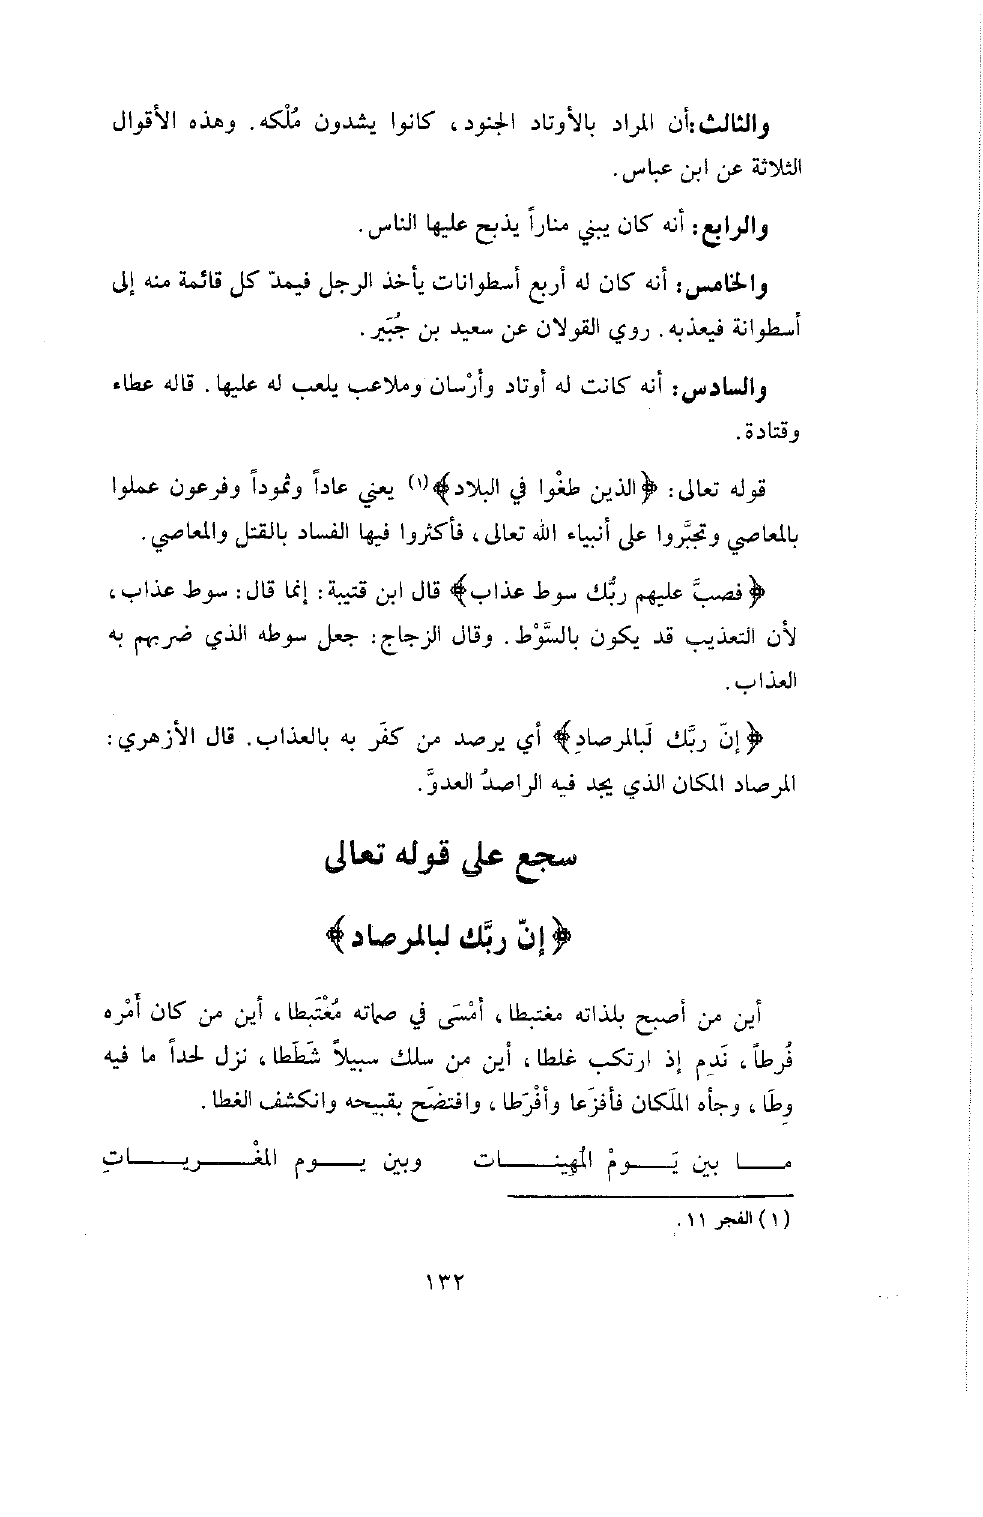 والثالث:أن المراد بالأوتاد الجنود، كانوا يشدون مُلْكه. وهذه الأقوال
الثلاثة عن ابن عباس.
والرابع: أنه كان يبني مناراً يذبح عليها الناس.
والخامس: أنه كان له أربع أسطوانات يأخذ الرجل فيمدّ كل قائمة منه إلى
أسطوانة فيعذبه. روي القولان عن سعيد بن جُبَير.
والسادس: أنه كانت له أوتاد وأرْسان وملاعب يلعب له عليها. قاله عطاء
وقتادة.
قوله تعالى: ﴿الذين طغْوا في البلاد﴾(١) يعني عاداً وثموداً وفرعون عملوا
بالمعاصي وتجبَّروا على أنبياء الله تعالى، فأكثروا فيها الفساد بالقتل والمعاصي.
﴿فصبَّ عليهم ربُّك سوط عذاب﴾ قال ابن قتيبة: إنما قال: سوط عذاب،
لأن التعذيب قد يكون بالسَّوْط. وقال الزجاج: جعل سوطه الذي ضربهم به
العذاب.
﴿إنّ ربَّك لَبالمرصادِ﴾ أي يرصد من كفَر به بالعذاب. قال الأزهري:
المرصاد المكان الذي يجد فيه الراصدُ العدوَّ.
سجع على قوله تعالى
﴿إنّ ربَّك لبالمرصاد﴾
أين من أصبح بلذاته مغتبطا، أمْسَى في صماته مُغْتَبطا، أين من كان أمْره
فُرطاً، نَدِم إذ ارتكب غلطا، أين من سلك سبيلاً شَطَطا، نزل لحداً ما فيه
وِطَا، وجأه الملَكان فأفزَعا وأفْرَطا، وافتضَح بقبيحه وانكشف الغطا.
مـــا بين يَـــومْ المُهِينـــات وبين يـــوم المغْـــريـــاتِ
(١) الفجر ١١.
١٣٢